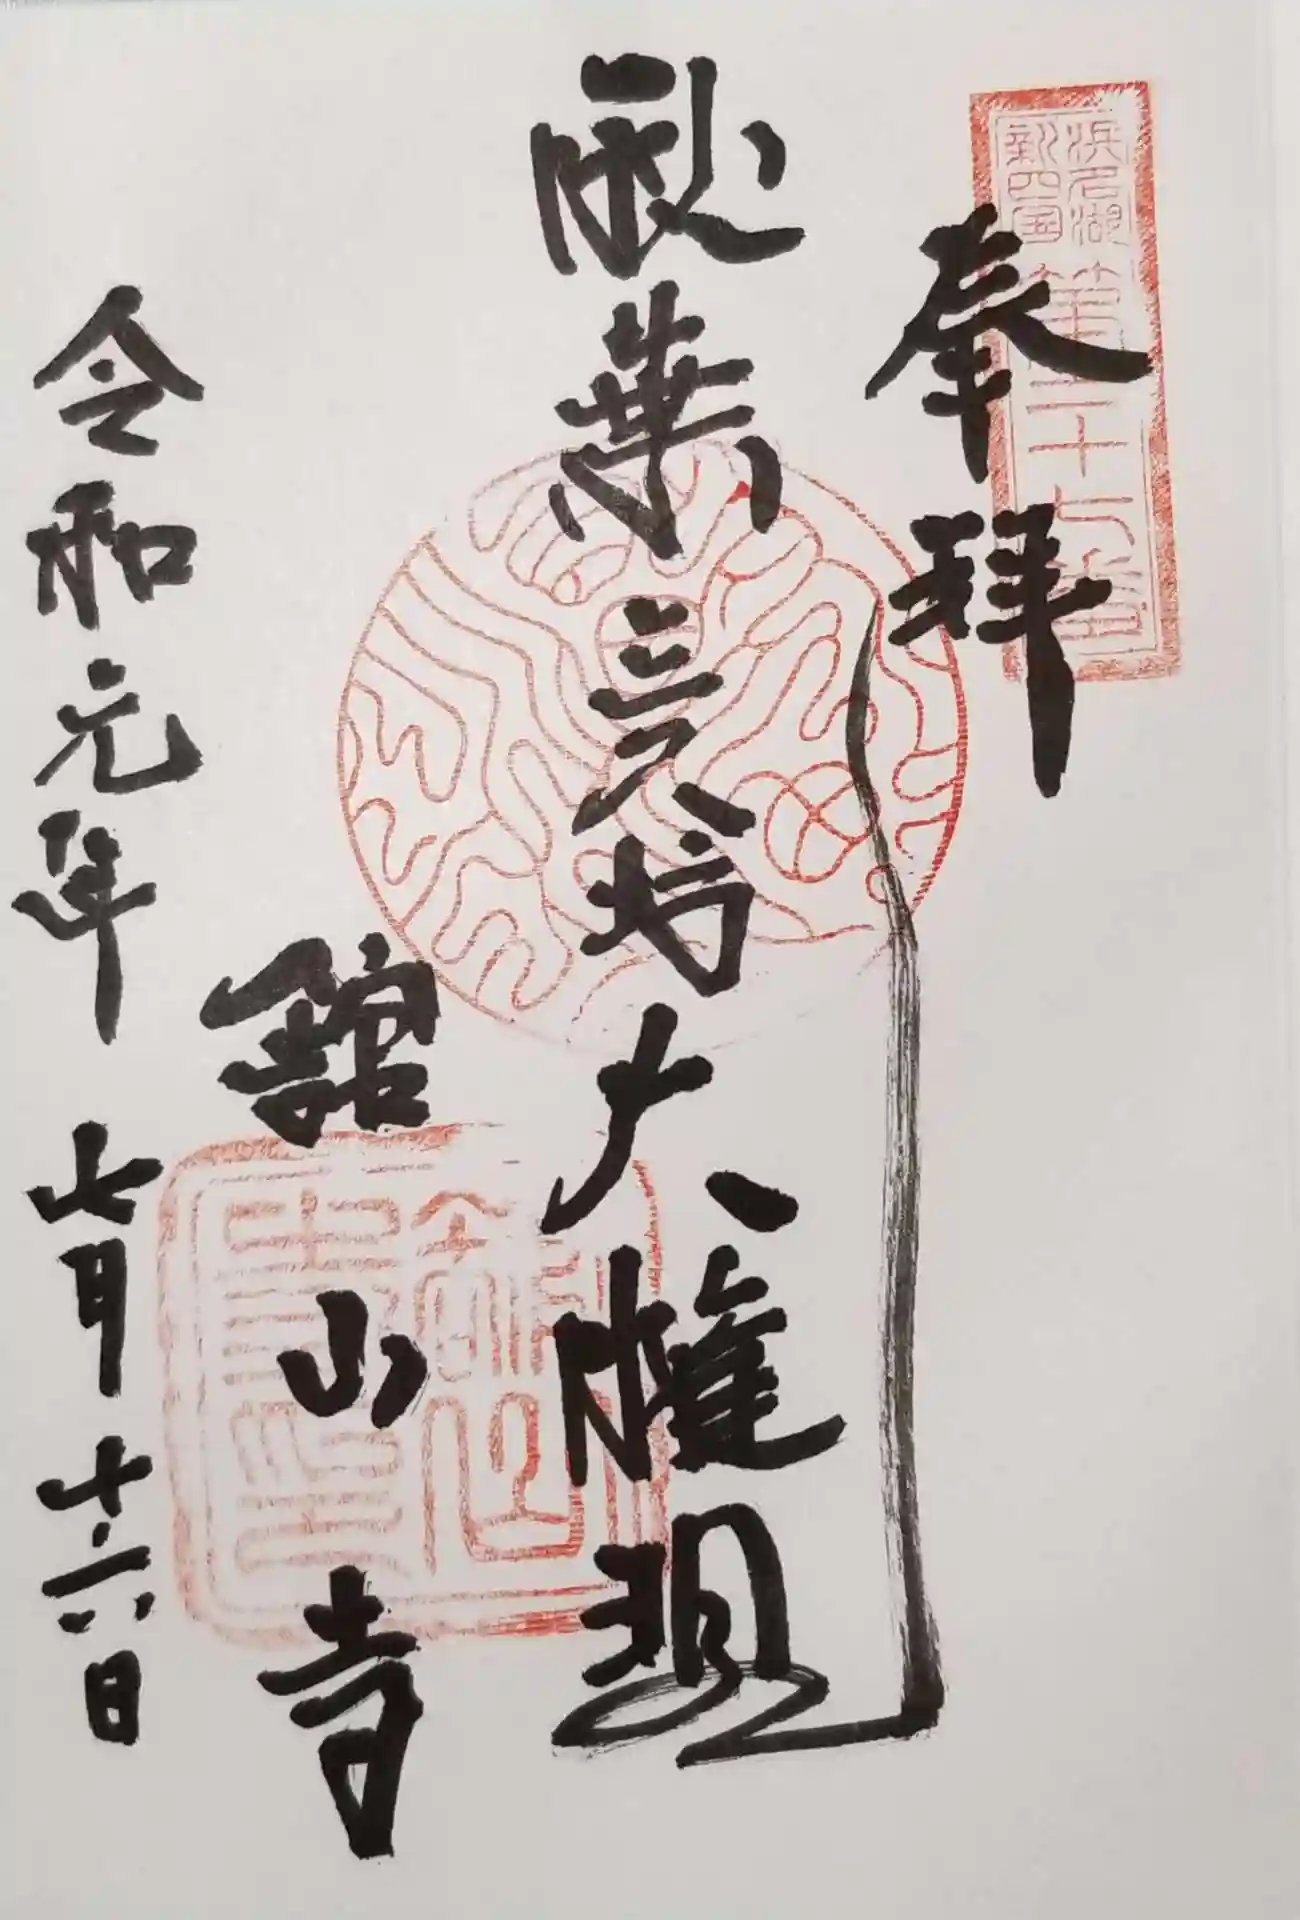 浜名湖
新四国
奉拝
秋葉三尺坊大権現
舘山寺
令和元年七月十六日